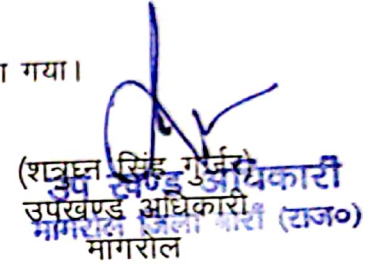 ा गया।
(शत्रुघ्न सिंह गुर्जर)
उप खण्ड अधिकारी
उपखण्ड अधिकारी
मांगरोल जिला बारां (राज०)
मांगरोल